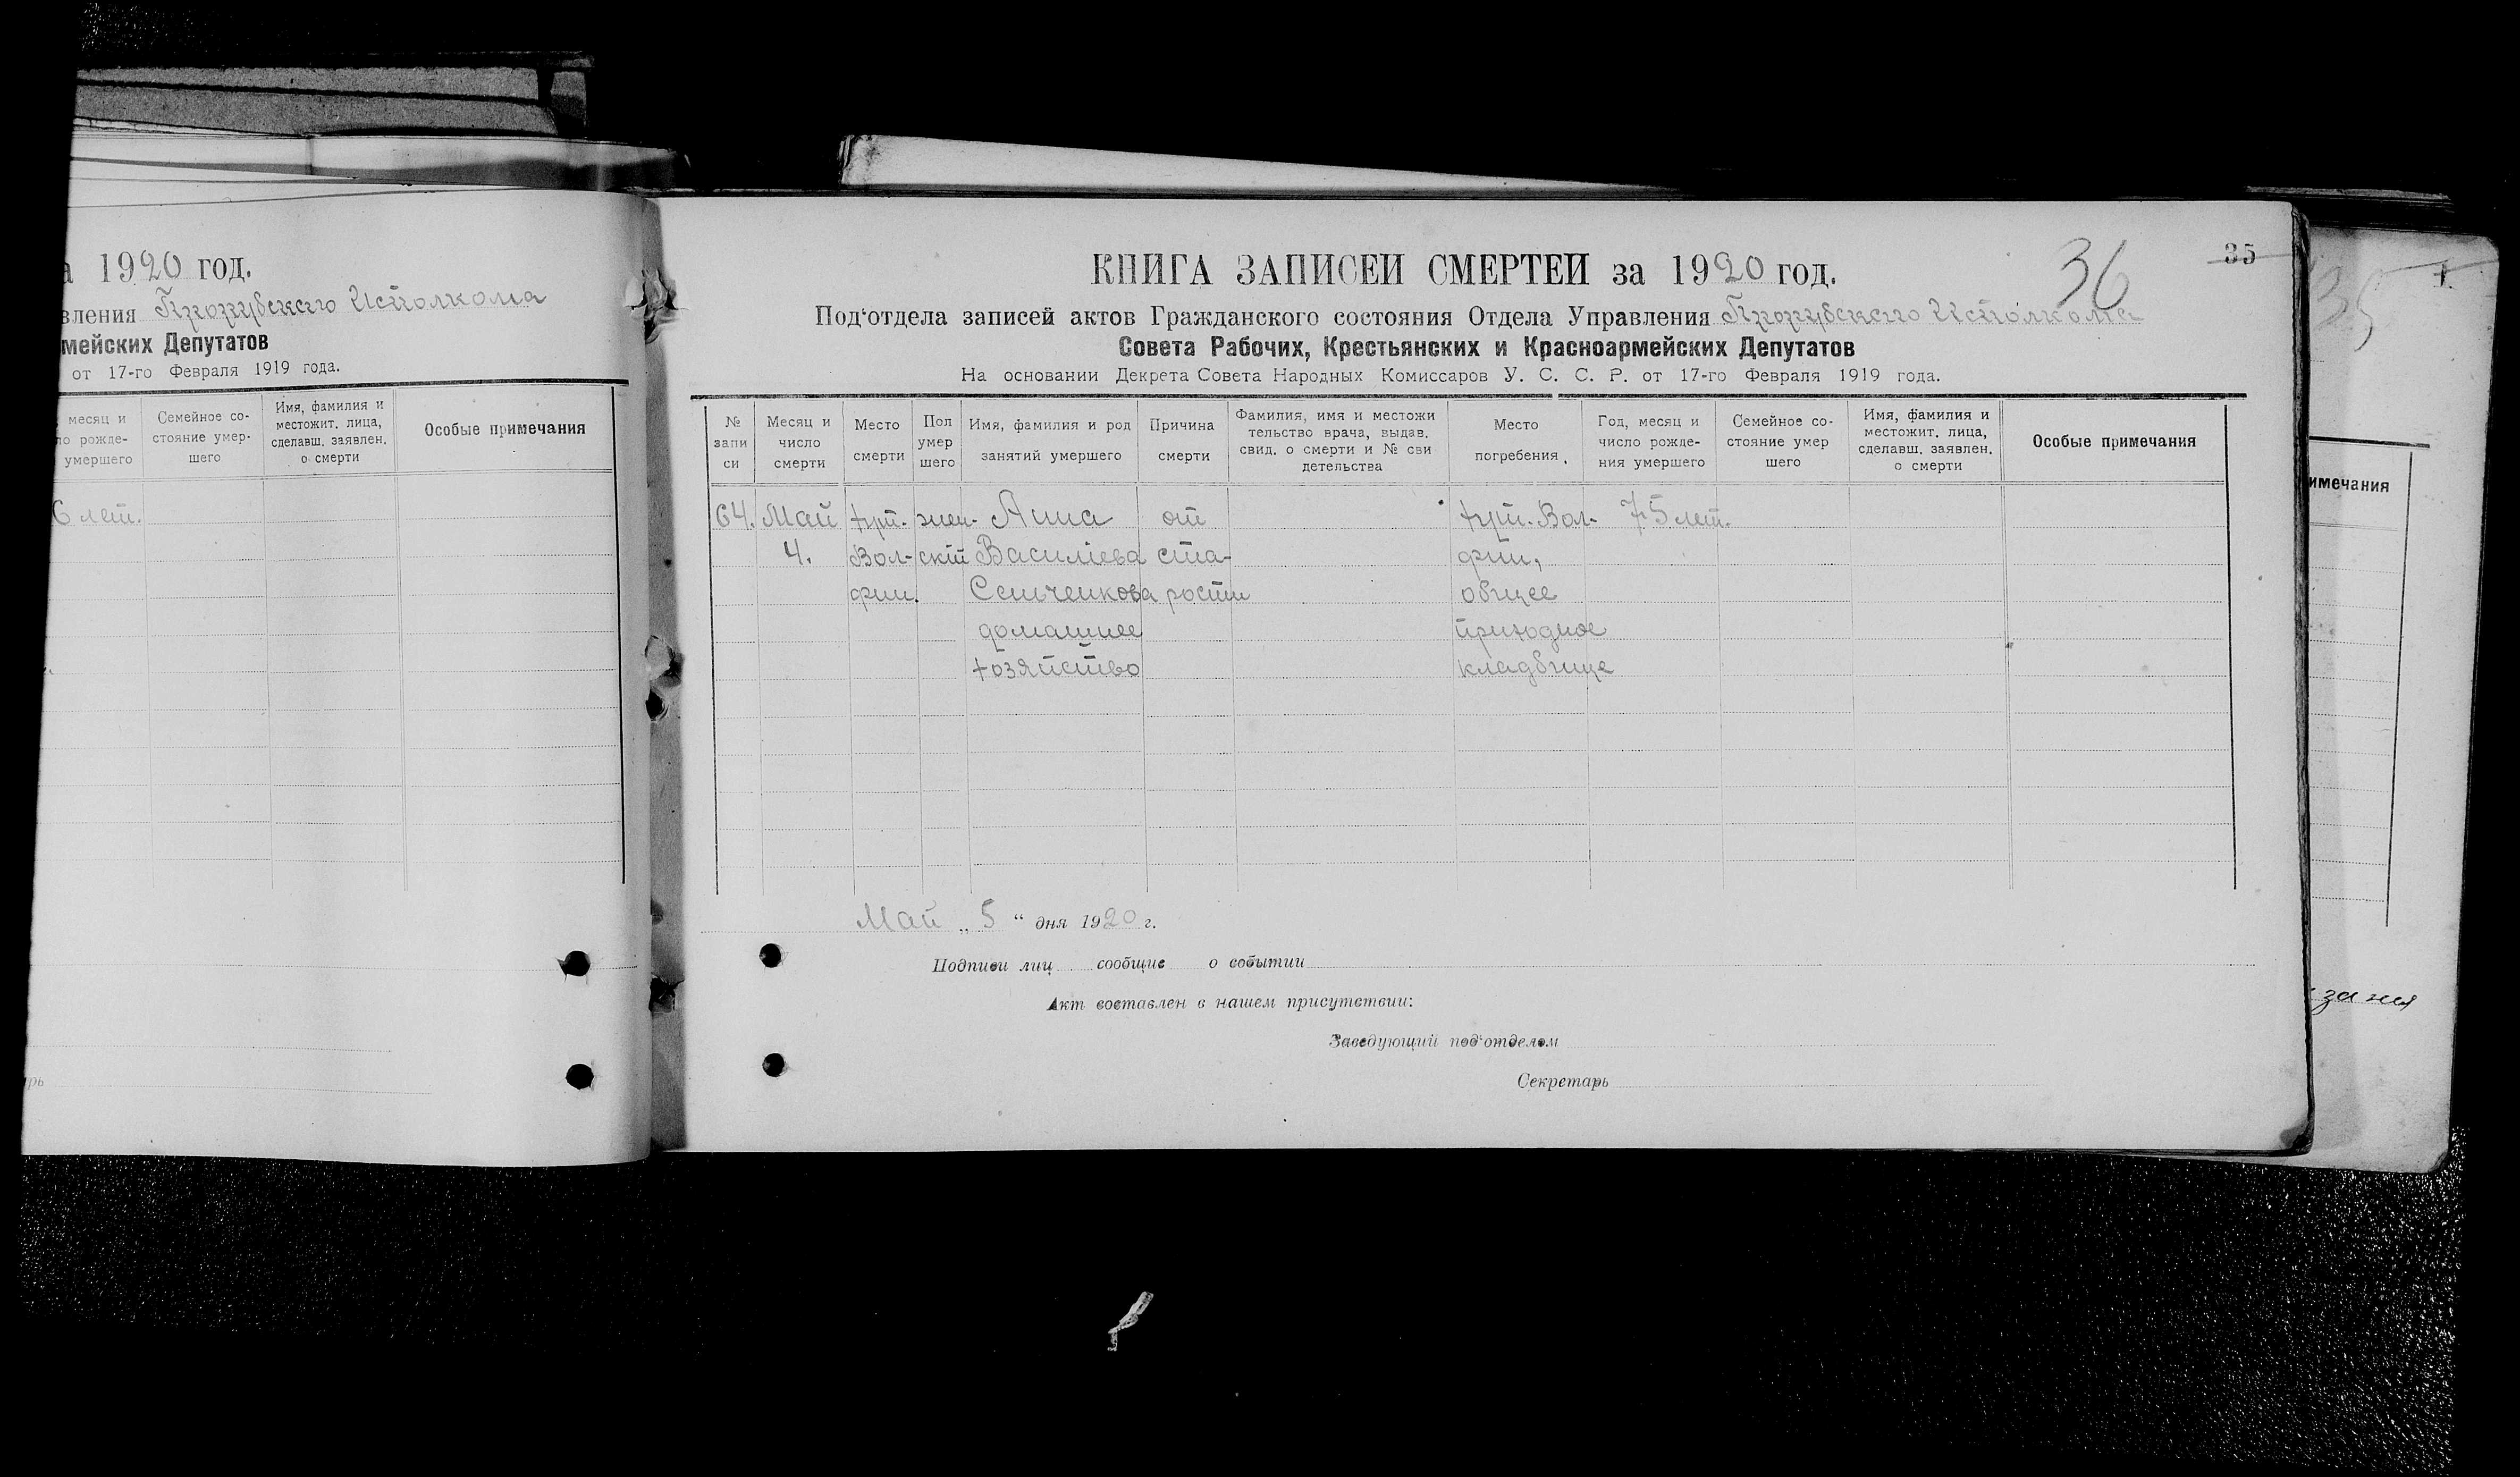 1920 год.
вления Прорубского Исполкома
мейских Депутатов
от 17-го Февраля 1919 года.
месяц и
рожде-
умершего
Семейное со-
стояние умер-
шего
Имя, фамилия и
местожит. лица,
сделавш. заявлен.
о смерти
Особые примечания
6 лет.
35
36
КНИГА ЗАПИСЕЙ СМЕРТЕЙ за 1920 год.
Под'отдела записей актов Гражданского состояния Отдела Управления Прорубского Исполкома
Совета Рабочих, Крестьянских и Красноармейских Депутатов
На основании Декрета Совета Народных Комиссаров У. С. С. Р. от 17-го Февраля 1919 года.
№
запи
си
Месяц и
число
смерти
Место
смерти
Пол
умер
шего
Имя, фамилия и род
занятий умершего
Причина
смерти
Фамилия, имя и местожи
тельство врача, выдав.
свид. о смерти и № сви
детельства
Место
погребения
Год, месяц и
число рожде-
ния умершего
Семейное со-
стояние умер
шего
Имя, фамилия и
местожит. лица,
сделавш. заявлен.
о смерти
Особые примечания
64. Май хут. жен- Анна от хут. Вол- 75 лет.
4. Вол- скій Василіева ста- фин,
фин. Сенченкова рости общее
домашнее приходное
хозяйство кладбище
Май „ 5 “ дня 1920 г.
Подписи лиц сообщие о событии
Акт составлен в нашем присутствии:
Заведующий под'отделом
Секретарь
35
имечания